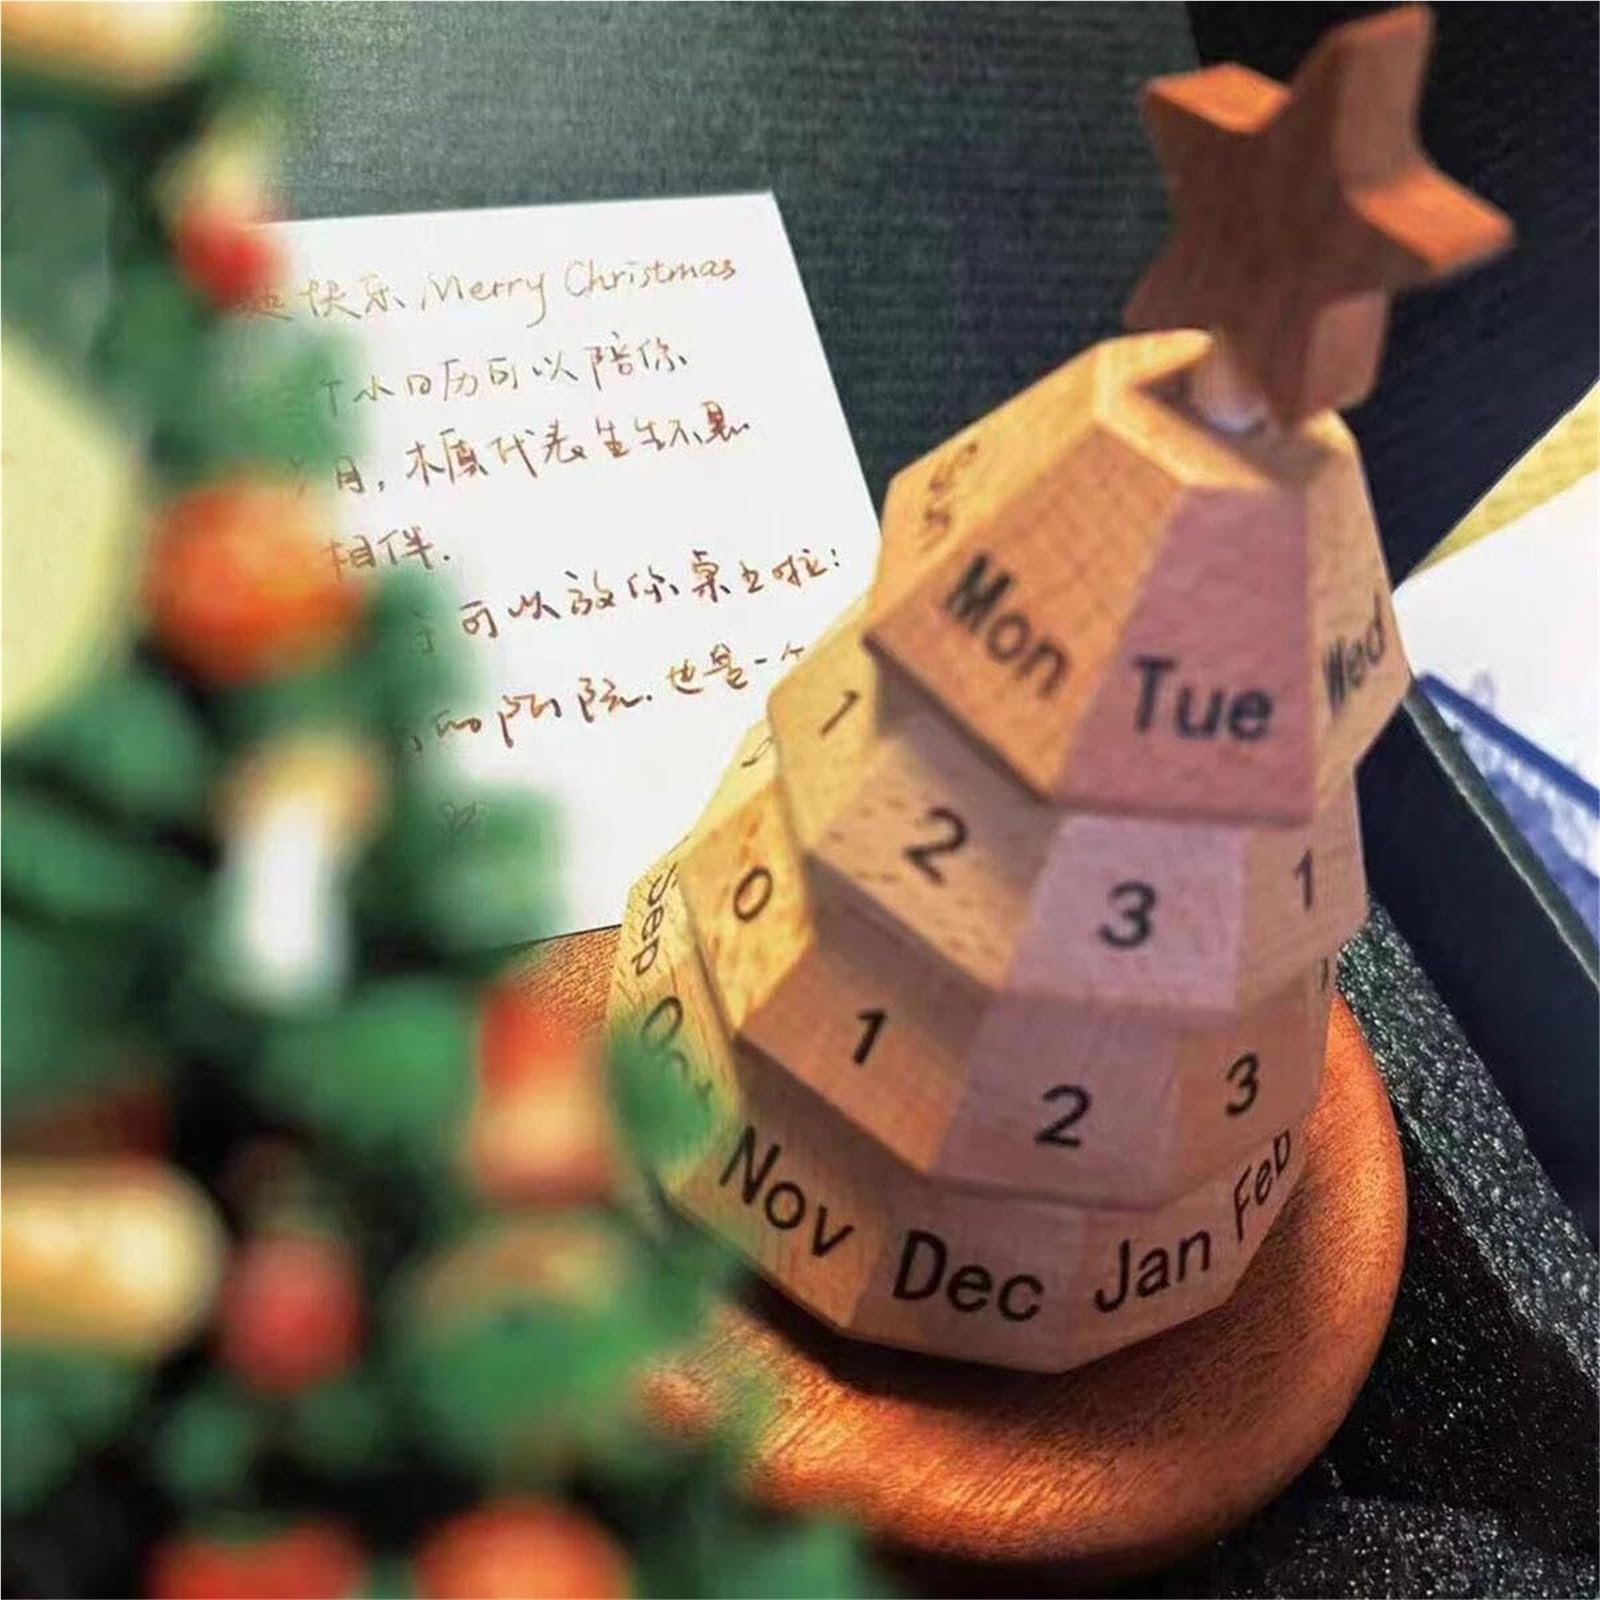 快乐 Merry Christmas
个小日历可以陪你
月,木质代表生生不息
相伴.
可以放你桌上啦!
的陪. 也是一个
Sun Mon Tue Wed
1 2 3 1
0 1 2 3
Sep Oct Nov Dec Jan Feb